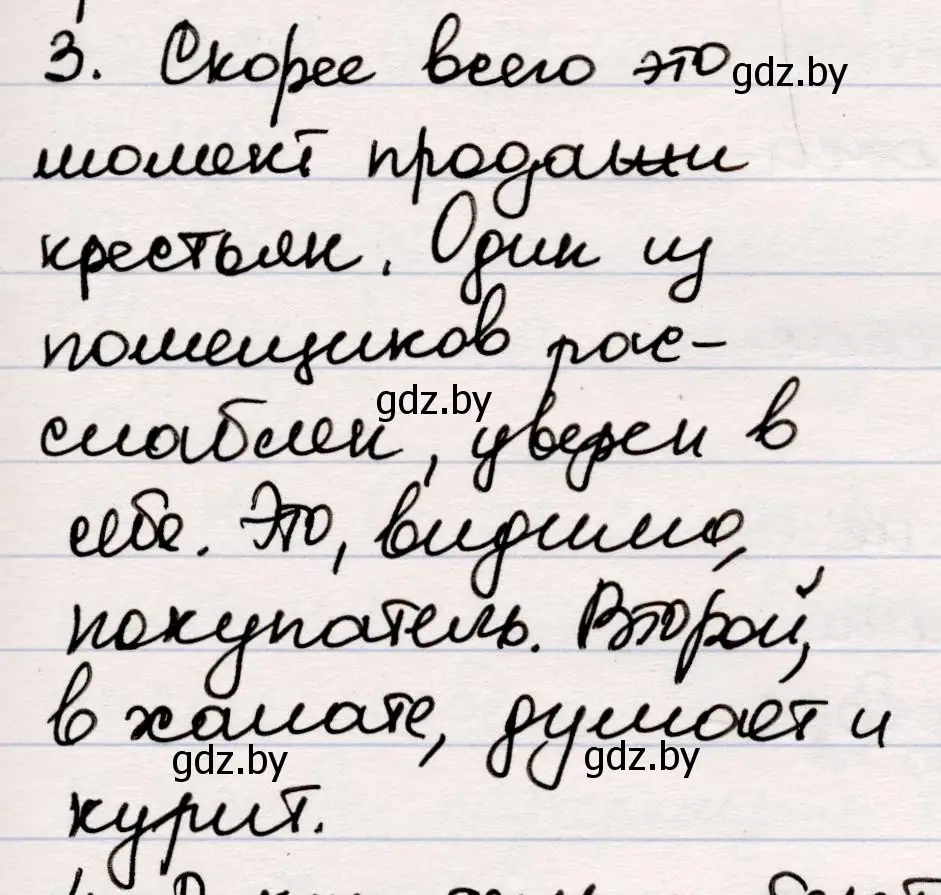 3. Скорее всего это
gdz.by
момент продажи
крестьян. Один из
помещиков рас-
gdz.by
слаблен, уверен в
себе. Это, видимо,
покупатель. Второй,
в халате, думает и
gdz.by
gdz.by
курит.